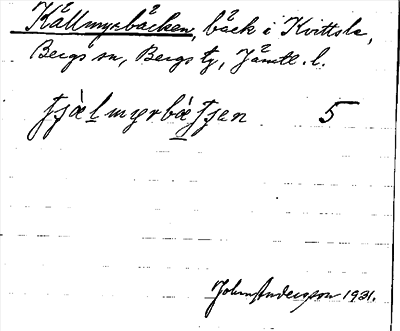 Källmyrbäcken, bäck i Kvittsle,
Bergs sn, Bergs tg, Jämtl. l.
tjälmyrbätjen 5
John Andersson 1931.